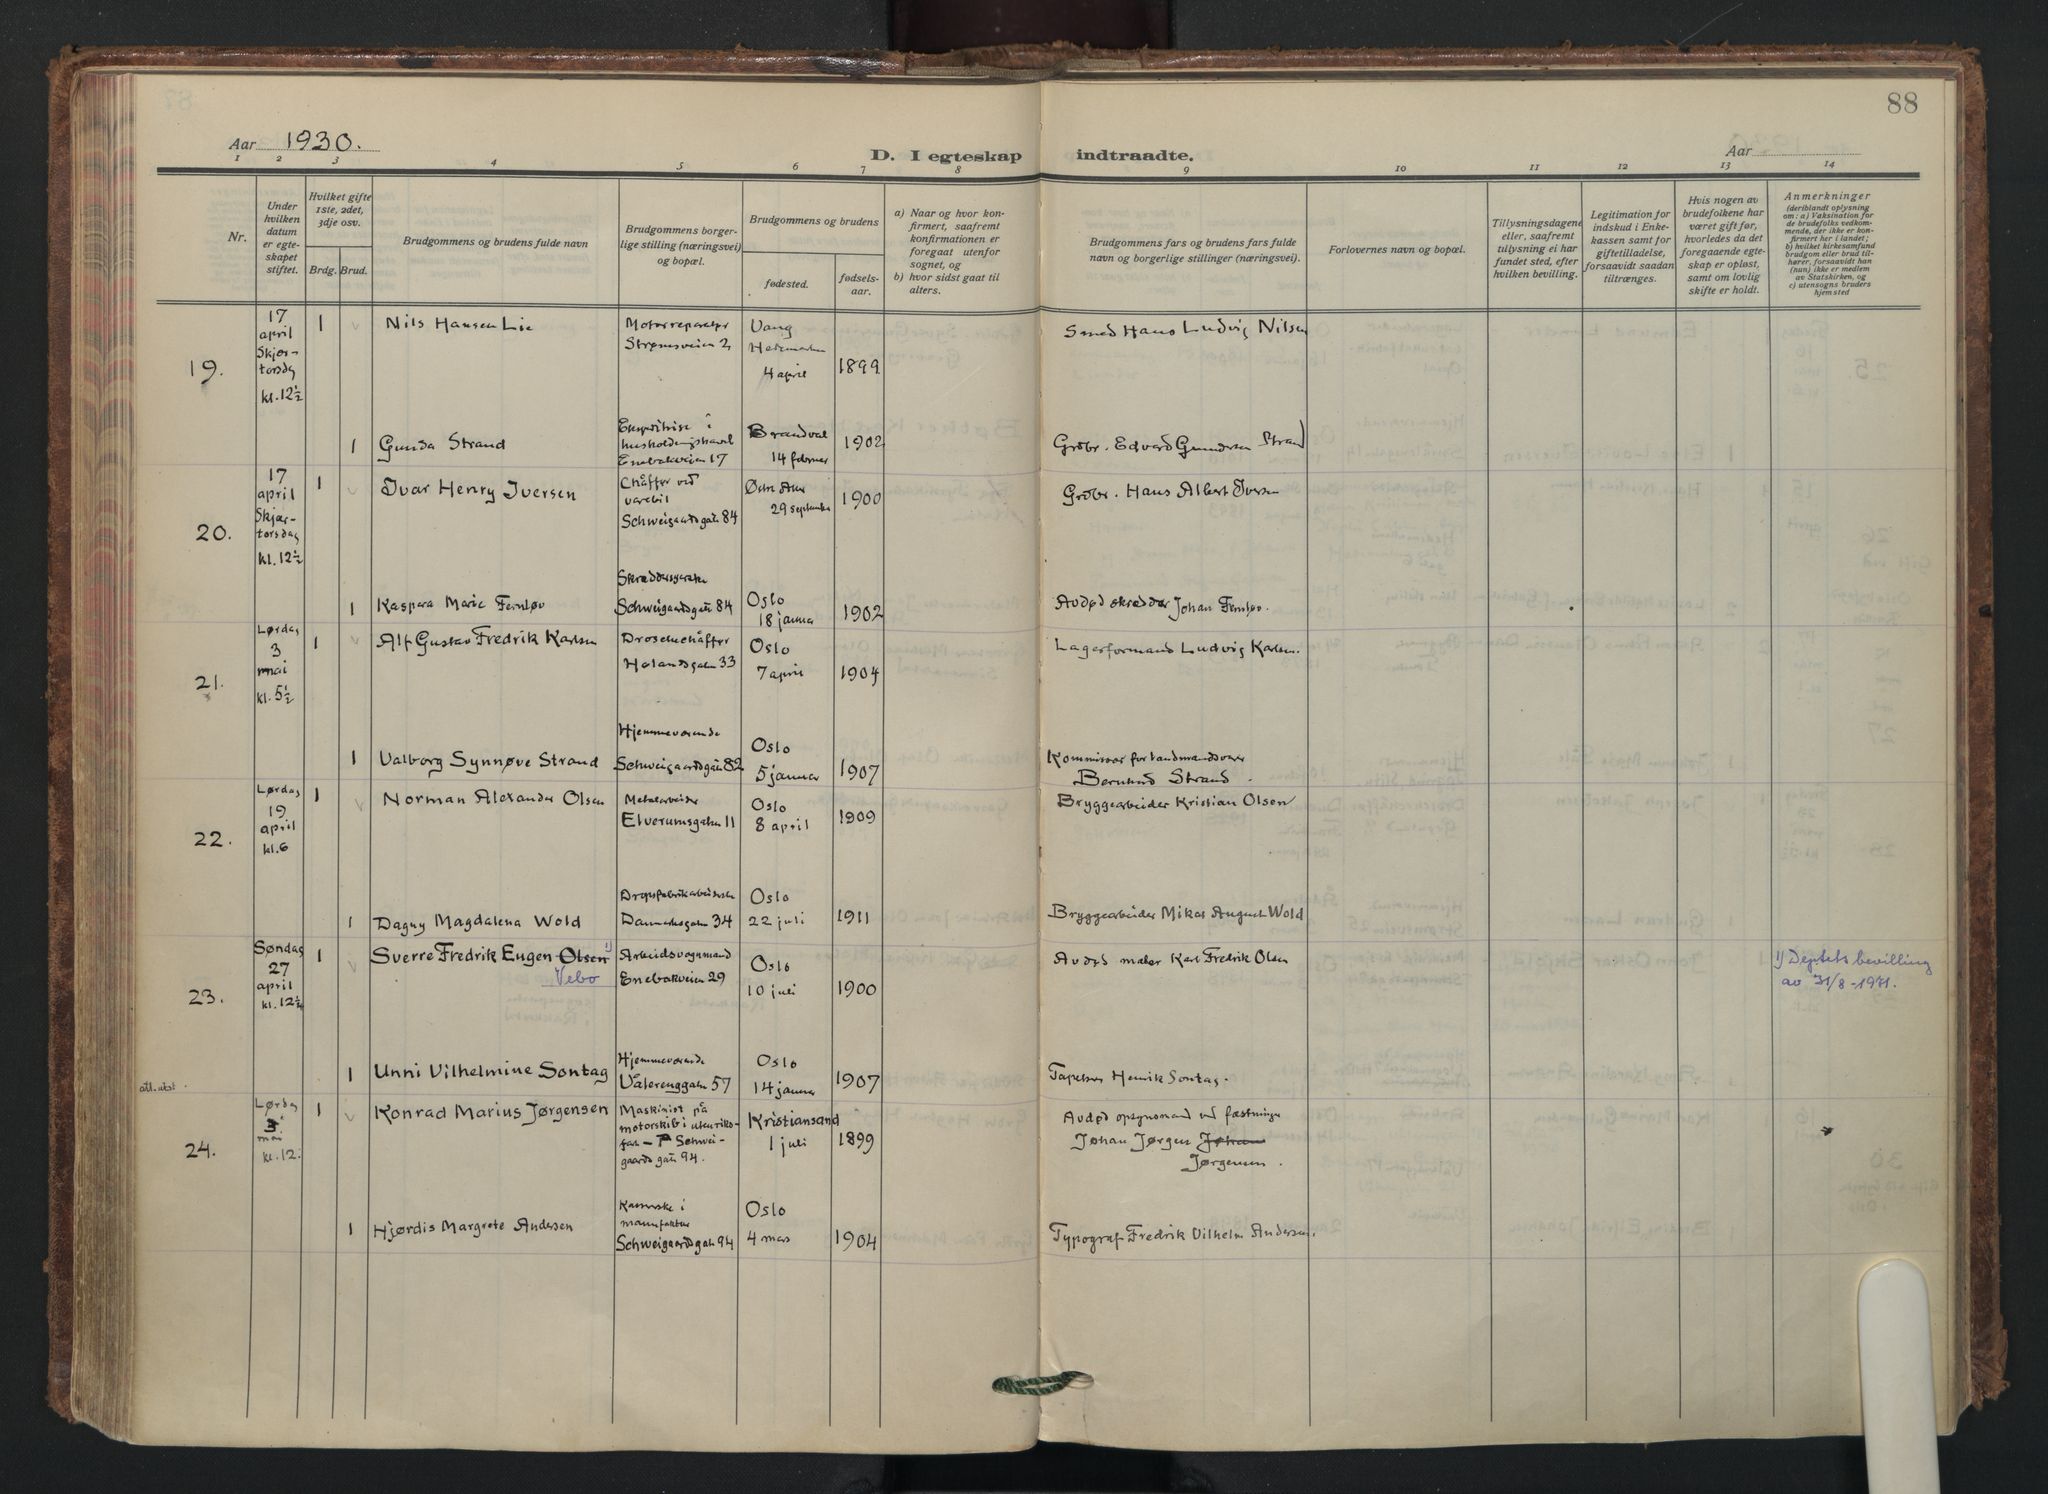 88
Aar 1930.
D. I egteskap indtraadte.
Aar
1 2 3 4 5 6 7 8 9 10 11 12 13 14
Nr.
Under hvilken datum er egteskapet stiftet.
Hvilket gifte 1ste, 2det, 3dje osv.
Brdg. Brud.
Brudgommens og brudens fulde navn
Brudgommens borgerlige stilling (næringsvei) og bopæl.
Brudgommens og brudens
fødested.
fødselsaar.
a) Naar og hvor konfirmert, saafremt konfirmationen er foregaat utenfor sognet, og
b) hvor sidst gaat til alters.
Brudgommens fars og brudens fars fulde navn og borgerlige stillinger (næringsvei).
Forlovernes navn og bopæl.
Tillysningsdagene eller, saafremt tillysning ei har fundet sted, efter hvilken bevilling.
Legitimation for indskud i Enkekassen samt for giftetilladelse, forsaavidt saadan tiltrænges.
Hvis nogen av brudefolkene har været gift før, hvorledes da det foregaaende egteskap er opløst, samt om lovlig skifte er holdt.
Anmerkninger
(deriblandt oplysning om: a) Vaksination for de brudefolks vedkommende, der ikke er konfirmert her i landet; b) hvilket kirkesamfund brudgom eller brud tilhører, forsaavidt han (hun) ikke er medlem av Statskirken, og c) utensogns bruders hjemsted
19.
17 april Skjærtorsdag kl. 12½
1
Nils Hansen Lie
Motorreparatør Strømsveien 2
Vang Hedemarken 4 april
1899
Smed Hans Ludvig Nilsen
1
Gunda Strand
Ekspeditrise i
Enebakveien 17
Brandval 14 februar
1902
Grdbr. Edvard Gundersen Strand
20.
17 april Skjærtorsdag kl. 12½
1
Ivar Henry Iversen
Chåffør ved varebil Schweigaardsgatn 84
29 september
1900
Grdbr. Hans Albert Iversen
1
Kaspara Marie Fernløv
Skræddersyerske Schweigaardsgatn 84
Oslo 18 januar
1902
Avdød skrædder Johan Fernløv.
21.
Lørdag 3 mai kl. 5½
1
Alf Gustav Fredrik Karlsen
Droschechåffør Hølandsgatn 33
Oslo 7 april
1904
Lagerformand Ludvig Karlsen.
1
Valborg Synnøve Strand
Hjemmeværende Schweigaardsgatn 82
Oslo 5 januar
1907
Kommissær for landmandsvarer Bernhard Strand.
22.
Lørdag 19 april kl. 6
1
Norman Alexander Olsen
Metalarbeider Elverumsgatn 11
Oslo 8 april
1909
Bryggearbeider Kristian Olsen
1
Dagny Magdalena Wold
Dropsfabrikarbeiderske Danmarksgatn 34
Oslo 22 juli
1911
Bryggearbeider Mikal August Wold
23.
Søndag 27 april kl. 12½
1
Sverre Fredrik Eugen Olsen 1)
Vebo
Arbeidsvognmand Enebakveien 29
Oslo 10 juli
1900
Avdød maler Karl Fredrik Olsen
1) Deptets bevilling av 31/8-1931.
1
Unni Vilhelmine Sontag
Hjemmeværende Vålerenggatn 57
Oslo 14 januar
1907
Tapetserer Henrik Sontag.
att. utst.
24.
Lørdag 3 mai kl. 12.
1
Konrad Marius Jørgensen
Maskinist på motorskib i utenriksfart – Schweigaardsgatn 94.
Kristiansand 1 juli
1899
Avdød opsynsmand ved fæstningen Johan Jørgen Johan Jørgensen.
1
Hjørdis Margrete Andersen
Schweigaardsgatn 94
Oslo 4 mars
1904
Typograf Fredrik Vilhelm Andersen.